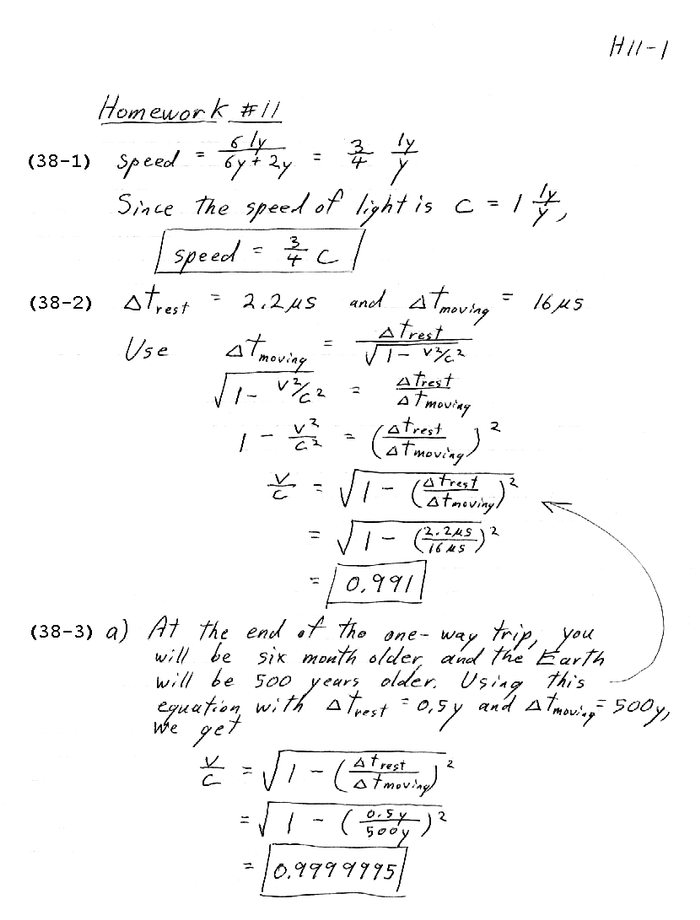 H11-1
Homework #11
(38-1) speed = 6 ly / 6y + 2y = 3/4 ly/y
Since the speed of light is c = 1 ly/y,
speed = 3/4 c
(38-2) Δt_rest = 2.2 μs and Δt_moving = 16 μs
Use Δt_moving = Δt_rest / √(1 - v²/c²)
√(1 - v²/c²) = Δt_rest / Δt_moving
1 - v²/c² = (Δt_rest / Δt_moving)²
v/c = √(1 - (Δt_rest / Δt_moving)²)
= √(1 - (2.2 μs / 16 μs)²)
= 0.991
(38-3) a) At the end of the one-way trip, you
will be six month older, and the Earth
will be 500 years older. Using this
equation with Δt_rest = 0.5y and Δt_moving = 500y,
we get
v/c = √(1 - (Δt_rest / Δt_moving)²)
= √(1 - (0.5y / 500y)²)
= 0.9999995